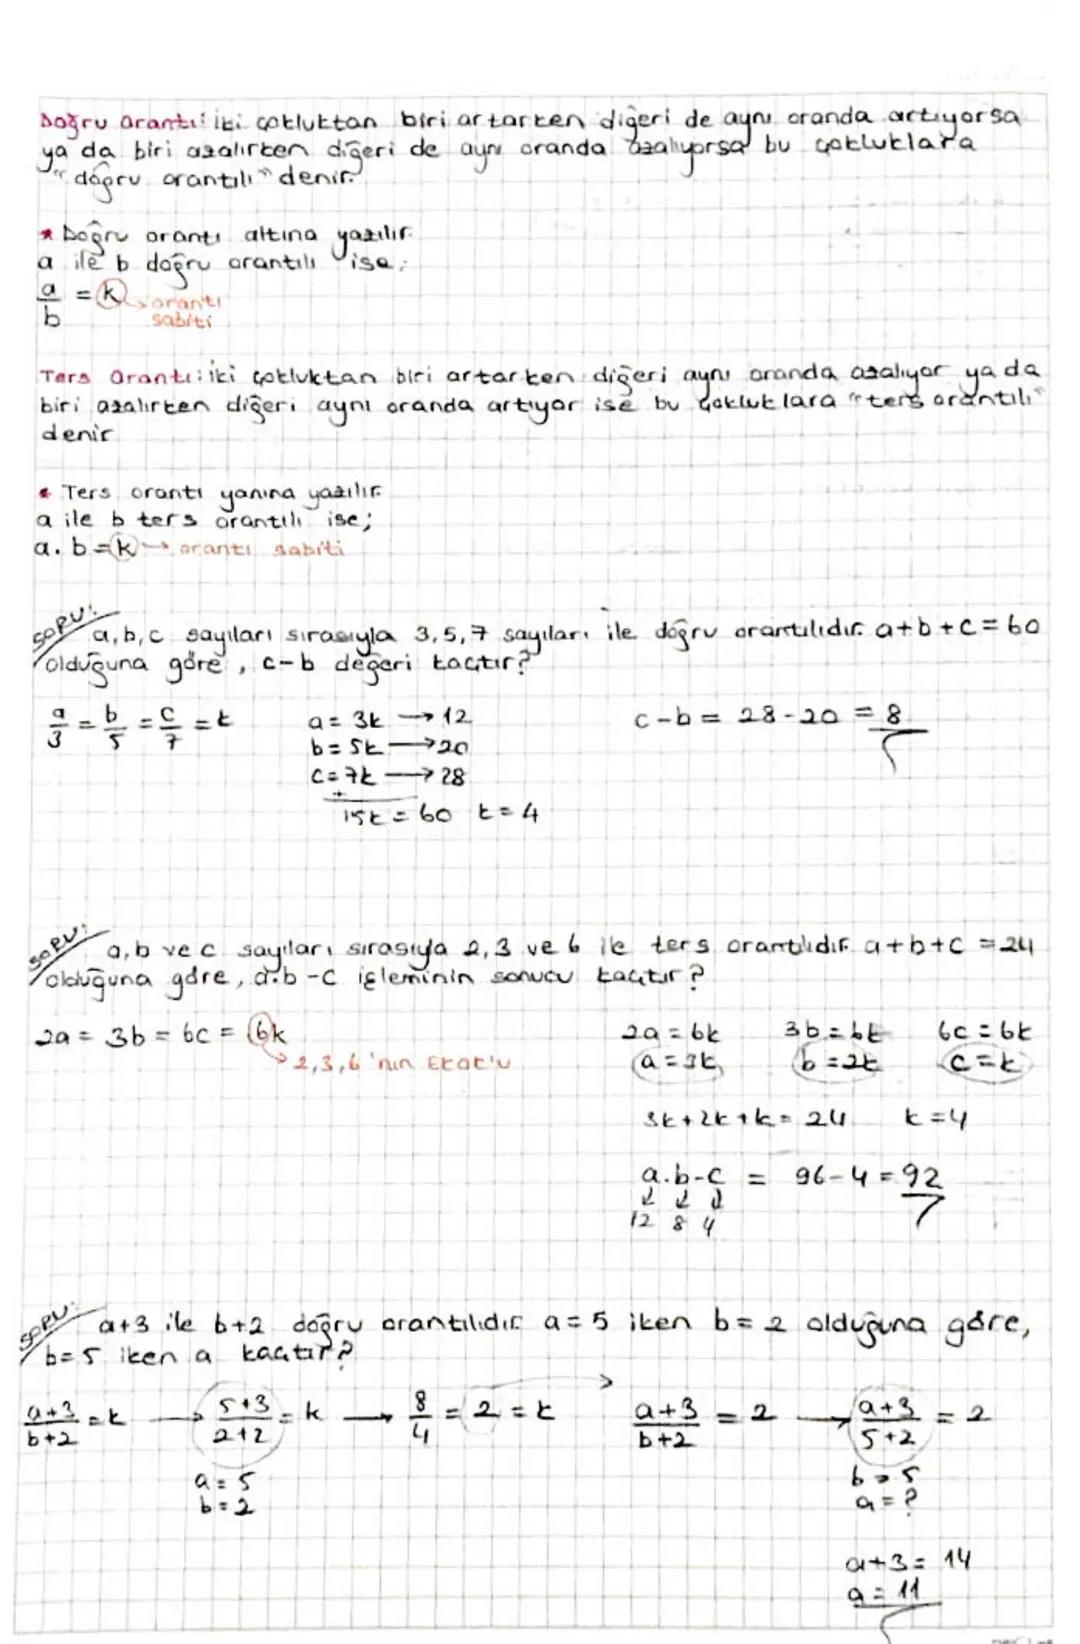 Doğru Orantı: iki çokluktan biri artarken diğeri de aynı oranda artıyorsa
ya da biri azalırken diğeri de aynı oranda azalıyorsa bu çokluklara
"doğru orantılı" denir.
* Doğru orantı altına yazılır.
a ile b doğru orantılı ise;
a/b = k → orantı sabiti
Ters Orantı: iki çokluktan biri artarken diğeri aynı oranda azalıyor ya da
biri azalırken diğeri aynı oranda artıyor ise bu çokluklara "ters orantılı"
denir
* Ters orantı yanına yazılır.
a ile b ters orantılı ise;
a.b=k → orantı sabiti
SORU:
a,b,c sayıları sırasıyla 3,5,7 sayıları ile doğru orantılıdır. a+b+c=60
olduğuna göre, c-b değeri kaçtır?
a/3 = b/5 = c/7 = k
a=3k → 12
b=5k → 20
c=7k → 28
+
15k=60 k=4
c-b = 28-20 = 8
SORU:
a,b ve c sayıları sırasıyla 2,3 ve 6 ile ters orantılıdır. a+b+c=24
olduğuna göre, a.b-c işleminin sonucu kaçtır?
2a = 3b = 6c = 6k
→ 2,3,6'nın EKOK'u
2a=6k 3b=6k 6c=6k
a=3k b=2k c=k
3k+2k+k=24 k=4
a.b-c = 96-4=92
↓ ↓ ↓
12 8 4
SORU:
a+3 ile b+2 doğru orantılıdır. a=5 iken b=2 olduğuna göre,
b=5 iken a kaçtır?
(a+3)/(b+2) = k → (5+3)/(2+2) = k → 8/4 = 2 = k → (a+3)/(b+2) = 2 → (a+3)/(5+2) = 2
a=5
b=2
b=5
a=?
a+3=14
a=11